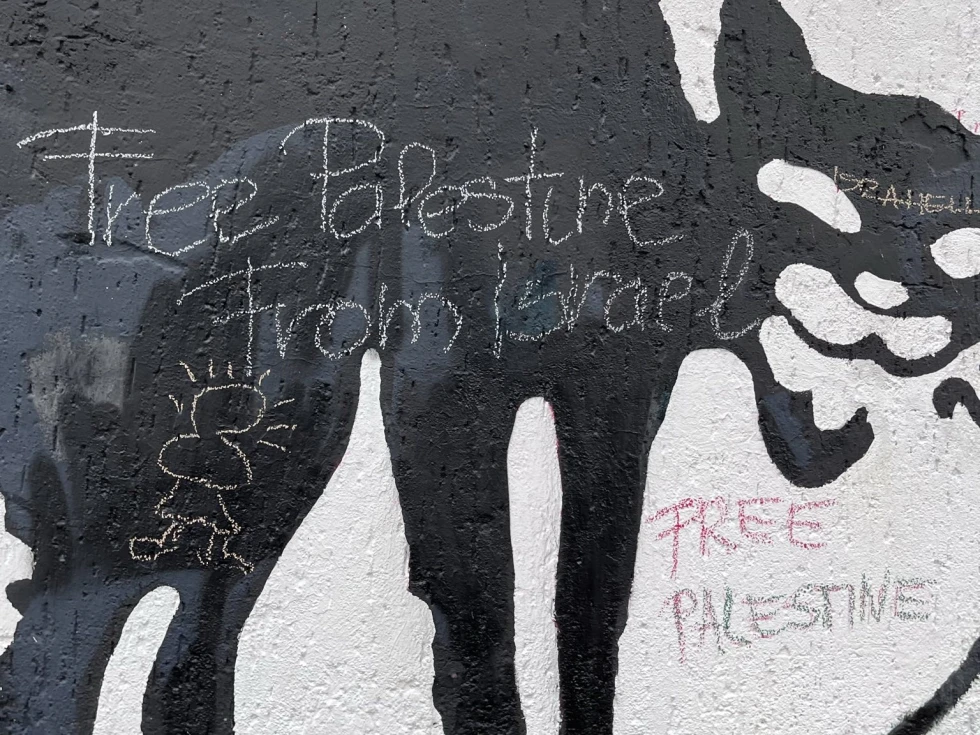 Free Palestine
From Israel
FREE
PALESTINE